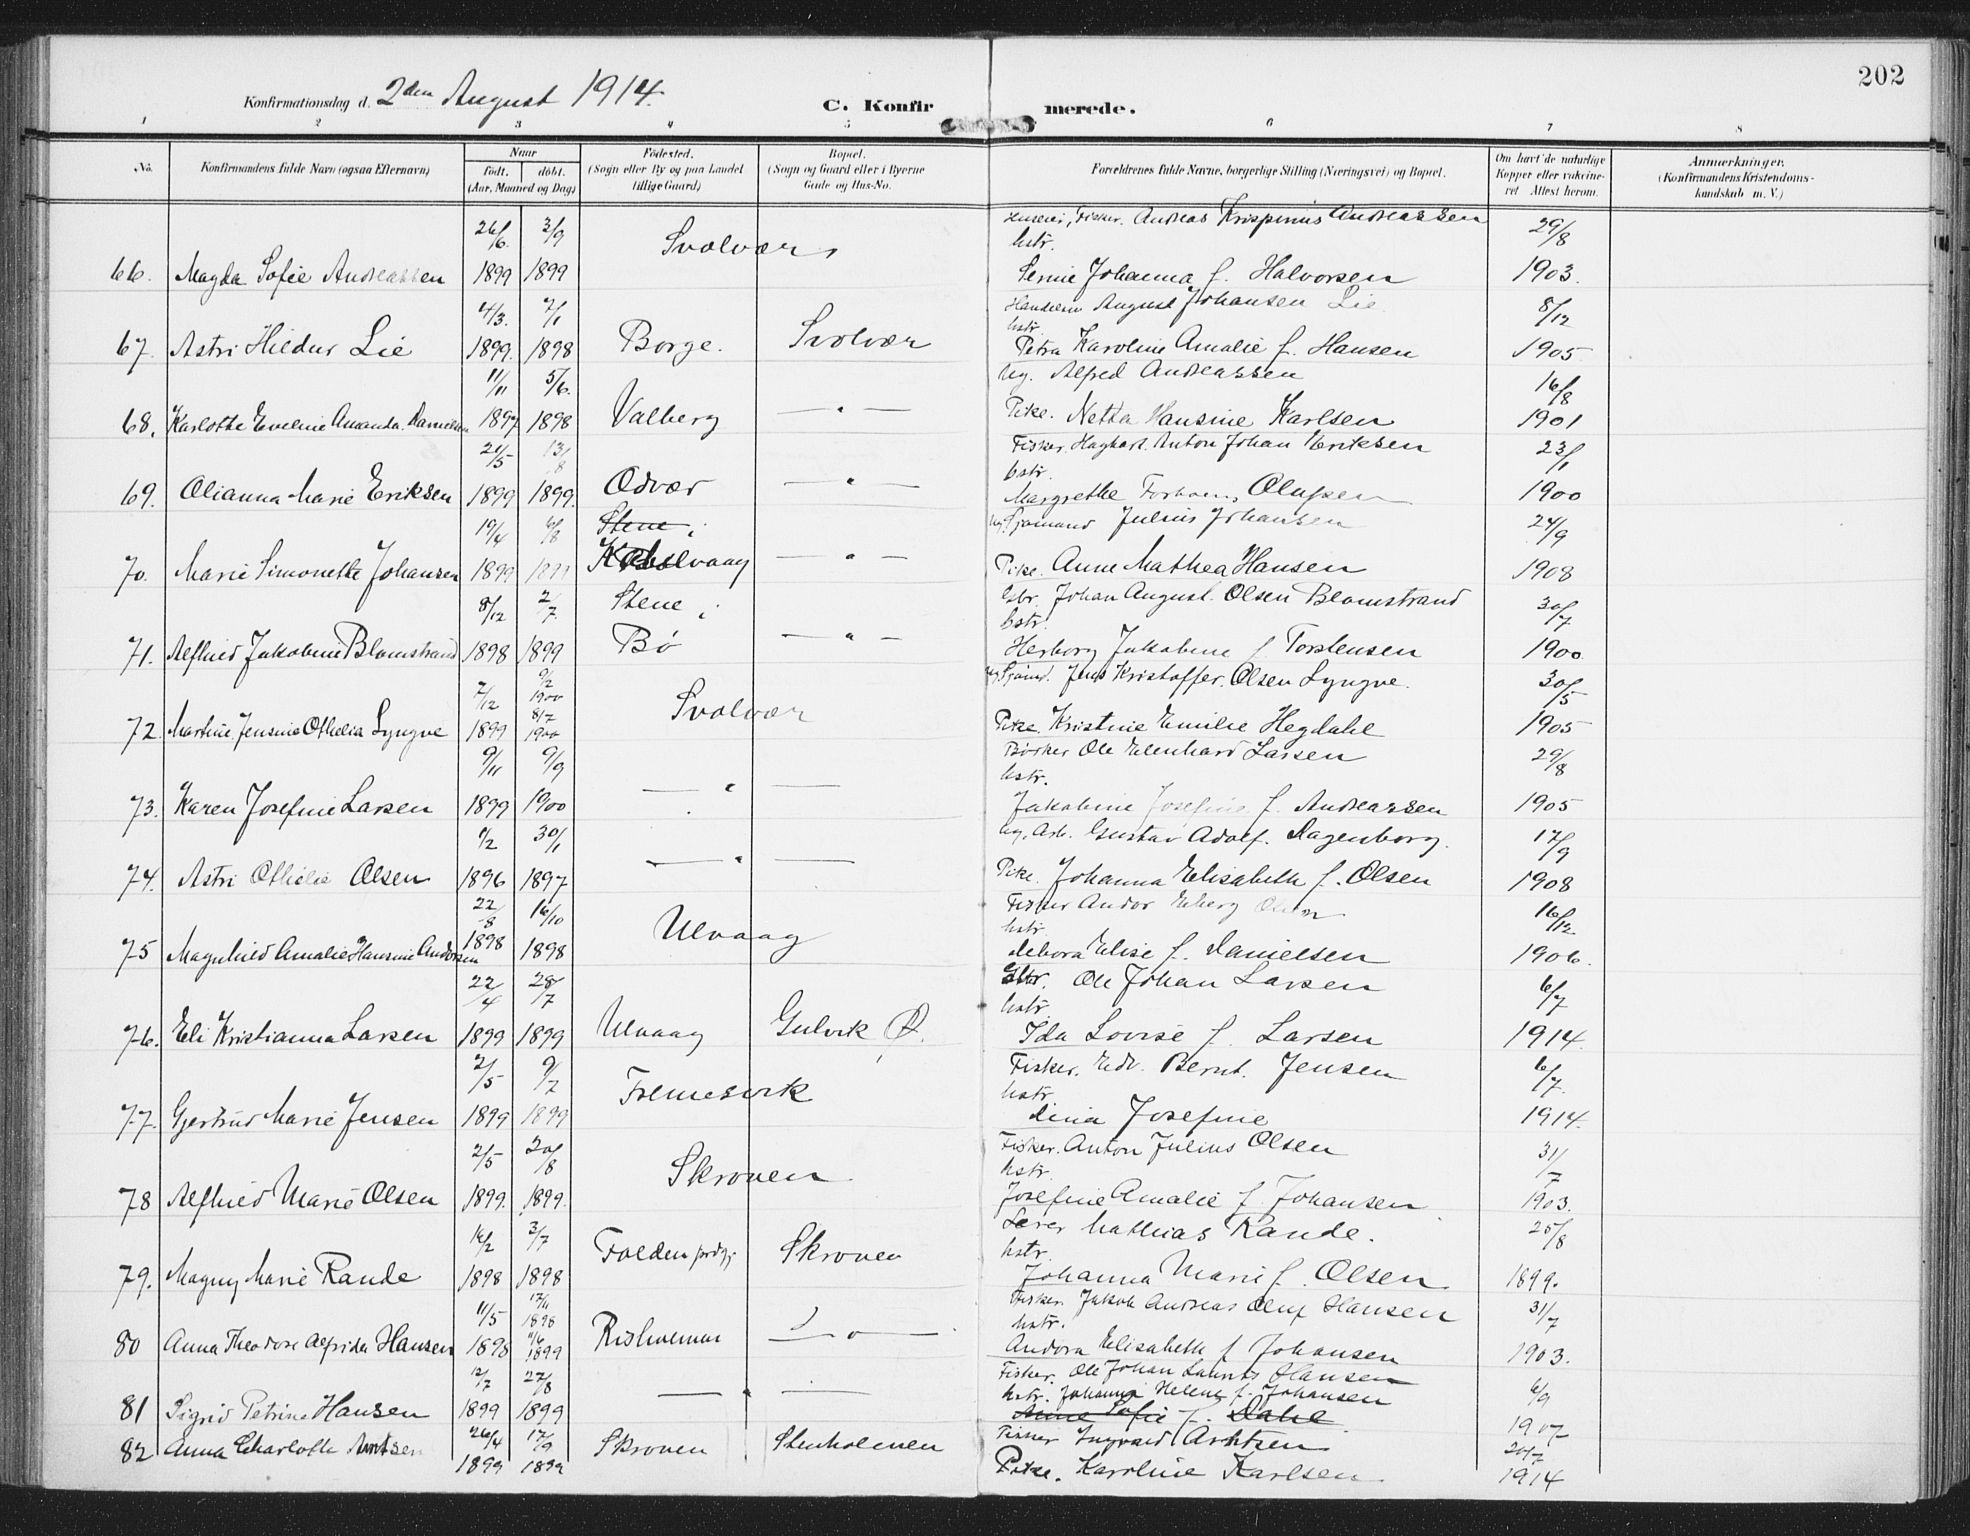 202
Konfirmationsdag d. 2den August 1914.
C. Konfirmerede.
1 2 3 4 5 6 7 8
No. Konfirmandens fulde Navn (ogsaa Efternavn) Naar født. døbt. (Aar, Maaned og Dag) Fødested. (Sogn eller By og paa Landet tillige Gaard) Bopæl. (Sogn og Gaard eller i Byerne Gade og Hus-No. Forældrenes fulde Navne, borgerlige Stilling (Næringsvei) og Bopæl. Om havt de naturlige Kopper eller vaccineret Attest herom. Anmærkninger. (Konfirmandens Kristendomskundskab m. V.)
26/6 3/9 Svolvær Fisker. Andreas Krispinus Andreassen 29/8
hstr.
66. Magda Sofie Andreassen 1899 1899 Johanna f. Halvorsen 1903.
4/3. 7/1 August Johansen Lie 8/12
hstr.
67. Astri Hildur Lie 1899. 1898 Borge. Svolvær Petra Karoline Amalie f. Hansen 1905
11/11 5/6. Ug. Alfred Andreassen 16/8
68. Karlotte Eveline Amanda Danielsen 1897 1898 Valberg — " — Pike. Netta Hansine Karlsen 1901
21/5 13/8 Fisker. Haghart Anton Johan Eriksen 23/1
hstr.
69. Olianna Marie Eriksen 1899 1899. Odvær — " — Margrethe Olufsen 1900
19/4 6/8 Stene i Ug. Sjømand Julius Johansen 24/9
70. Marie Simonette Johansen 1899 1899 Kabelvaag — " — Pike. Anne Mathea Hansen 1908
8/12 2/7 Stene i Gbr. Johan August Olsen Blomstrand 30/7
hstr.
71. Alfhild Jakobine Blomstrand 1898 1899 Bø — " — Herborg Jakobine f Torstensen 1900
7/12 9/2 1900 Svolvær Ug. Sjømd. Jens Kristoffer Olsen Lyngve. 30/5
72. Martine Jensine Othelia Lyngve 1899 8/7 1900 Pike Kristine Emilie Hegdahl 1905
9/11 9/9 Ole Edenhard Larsen 29/8
hstr.
73. Karen Josefine Larsen 1899 1900 — " — Jakobine Josefine f. Andreassen 1905
9/2 30/1 Ug. Arb. Gustav Adolf. Dagenborg. 17/9
74. Astri Othelie Olsen 1896 1897 — " — Pike. Johanna Elisabeth f. Olsen 1908
22/8 16/10 Ulvaag Fisker Andor Olsen 16/12.
hstr.
75 Magnhild Amalie Hansine Andorsen 1898 1898 Debora Elise f. Danielsen 1906.
22/4 28/7 Gbr. Ole Johan Larsen 6/7
hstr.
76. Eli Kristianna Larsen 1899 1899 Ulvaag Gulvik Ø. Ida Lovise f. Larsen 1914.
2/5 9/7 Fisker. Edv. Bernt. Jensen 6/7
hstr.
77. Gjertrud Marie Jensen 1899 1899 Dina Josefine 1914.
2/5 20/8 Skroven Fisker. Anton Julius Olsen 31/7
hstr.
78 Alfhild Marie Olsen 1899. 1899. Josefine Amalie f. Johansen 1903.
16/2 3/7 Lærer Mathias Rande. 25/8
hstr.
79. Magny Marie Rande 1898 1898 Folden prdgj. Skroven Johanna Marie f. Olsen 1899.
11/5 17/11 1898 Fisker Jakob Andreas Oluf Hansen 31/7
hstr.
80 Anna Theodore Alfrida Hansen 1898 11/6 1899 Risholmen — " — Andora Elisabeth f Johansen 1903.
12/7 27/8 Fisker. Ole Johan Laurits Hansen 6/9
hstr. Johanna Helene f. Johansen
81 Sigrid Petrine Hansen 1899 1899 — " — Anne Sofie f. Dahl 1907
26/4 17/9 Fisker Ingvald Arntsen 20/7
82 Anna Charlotte Arntsen 1899 1899 Skroven Stenholmen Pike. Karoline Karlsen 1914